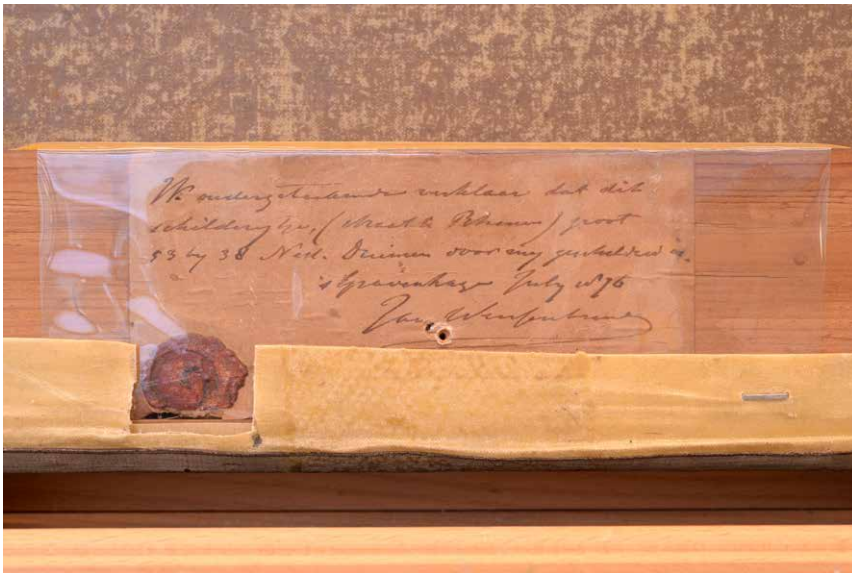 De ondergeteekende verklaar dat dit
schilderytje, (straat te Rhenen) groot
53 by 38 Ned. Duimen door my geschilderd is.
's Gravenhage July 1876
Jan Weissenbruch